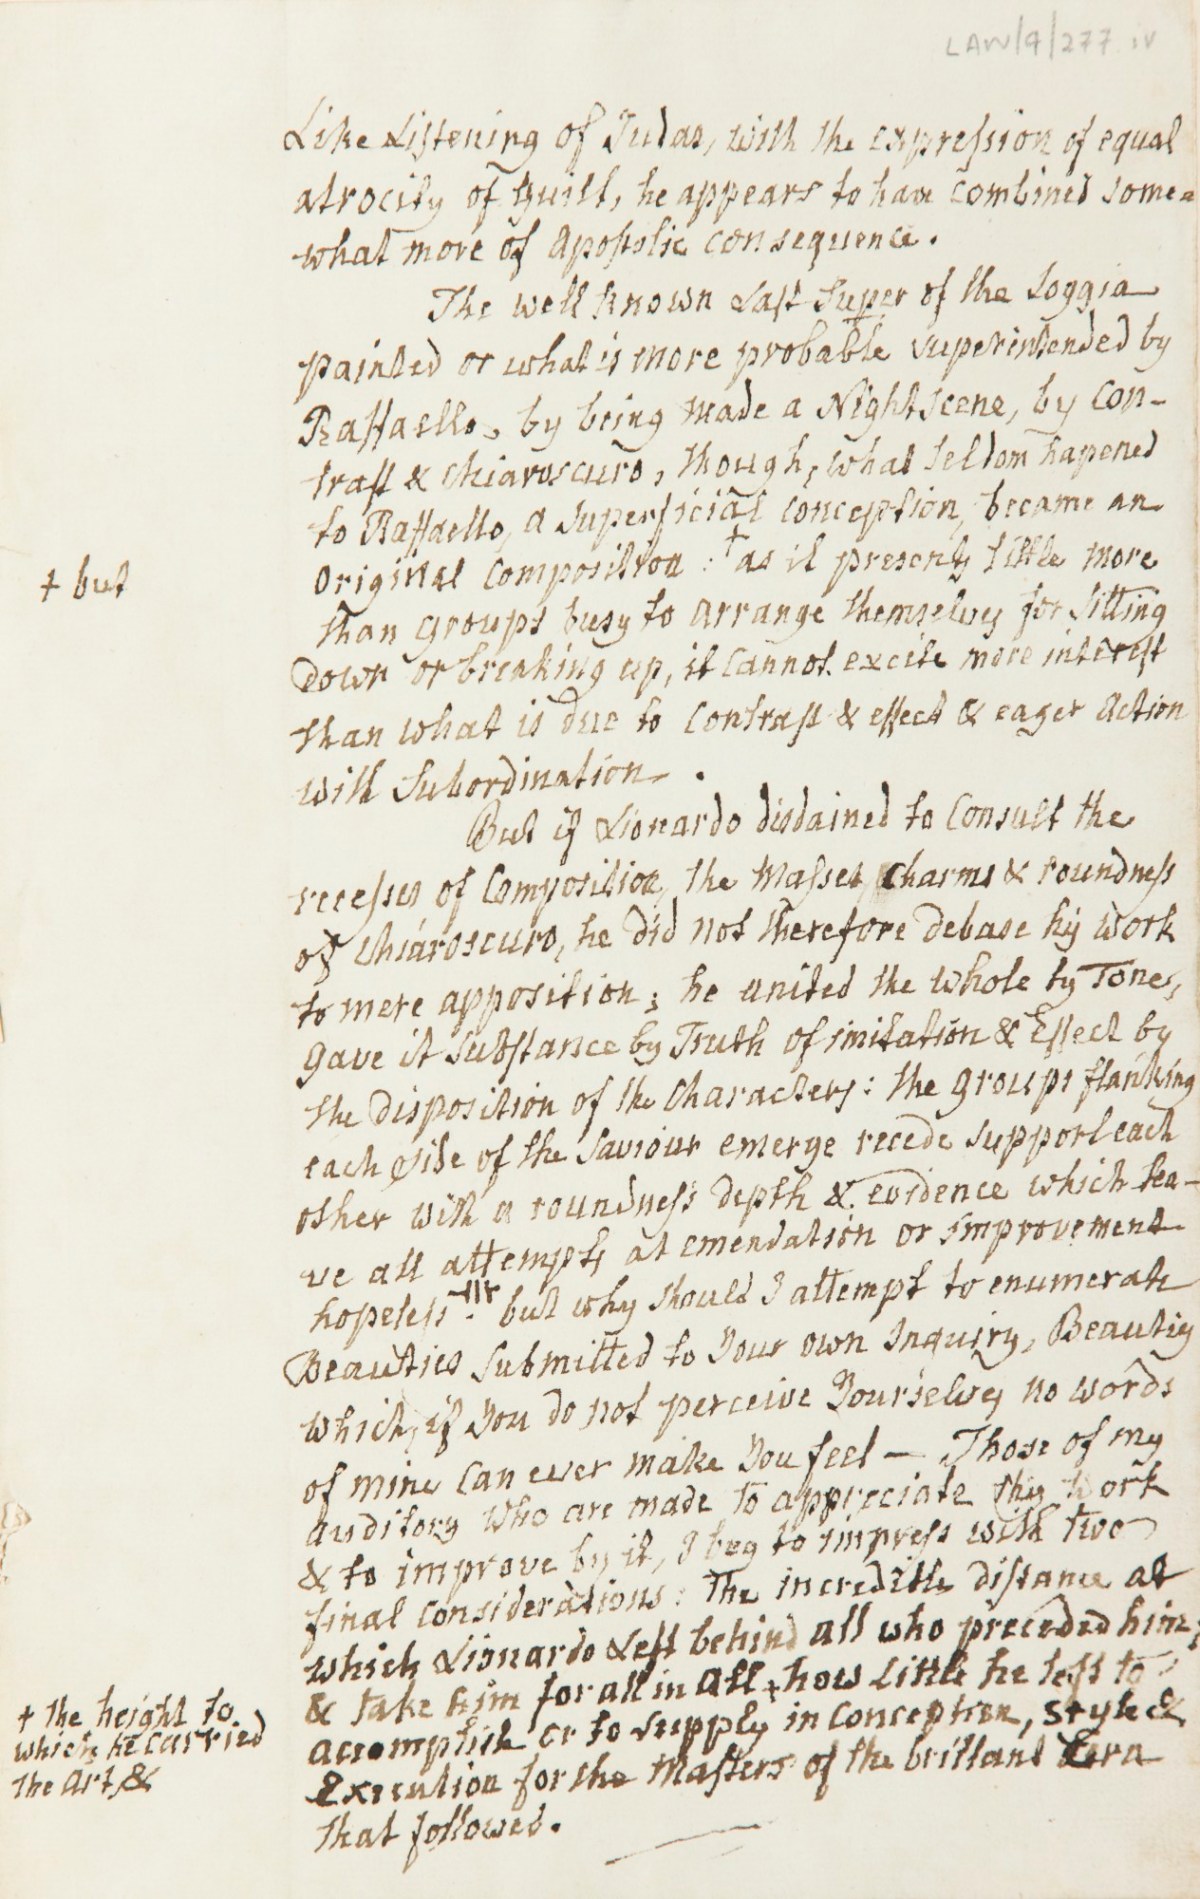 LAW/4/277 iv
Like Listening of Judas, with the expression of equal
atrocity of Guilt, he appears to have combined some=
what more of Apostolic consequence.
The well known Last Super of the Loggia
painted or what is more probable superintended by
Raffaello, by being made a Nightscene, by Con-
trast & Chiaroscuro, though, what seldom hapened
to Raffaello, a superficial conception, became an
Original Composition : + as it presents little more
+ but
than groups busy to arrange themselves for sitting
down or breaking up, it cannot excite more interest
than what is due to Contrast & effect & eager Action
with Subordination .
But if Lionardo disdained to Consult the
recesses of Composition, the Masses, Charms & roundness
of Chiaroscuro, he did not therefore debase his work
to mere apposition; he united the whole by Tones,
gave it Substance by Truth of imitation & Effect by
the disposition of the Characters: the groups flanking
each side of the Saviour emerge recede support each
other with a roundness depth & evidence which lea-
ve all attempts at emendation or improvement
hopeless. but why should I attempt to enumerate
Beauties Submitted to Your own Inquiry, Beauties
which, if You do not perceive Yourselves no words
of mine Can ever make You feel — Those of my
auditory who are made to appreciate this work
& to improve by it, I beg to impress with two
final considerations: The incredible distance at
which Lionardo Left behind all who preceded him;
& take him for all in all, + how Little he left to
+ the height to
which he carried
the Art, &
accomplish or to supply in Conception, style &
Execution for the Masters of the brillant Aera
that followed.